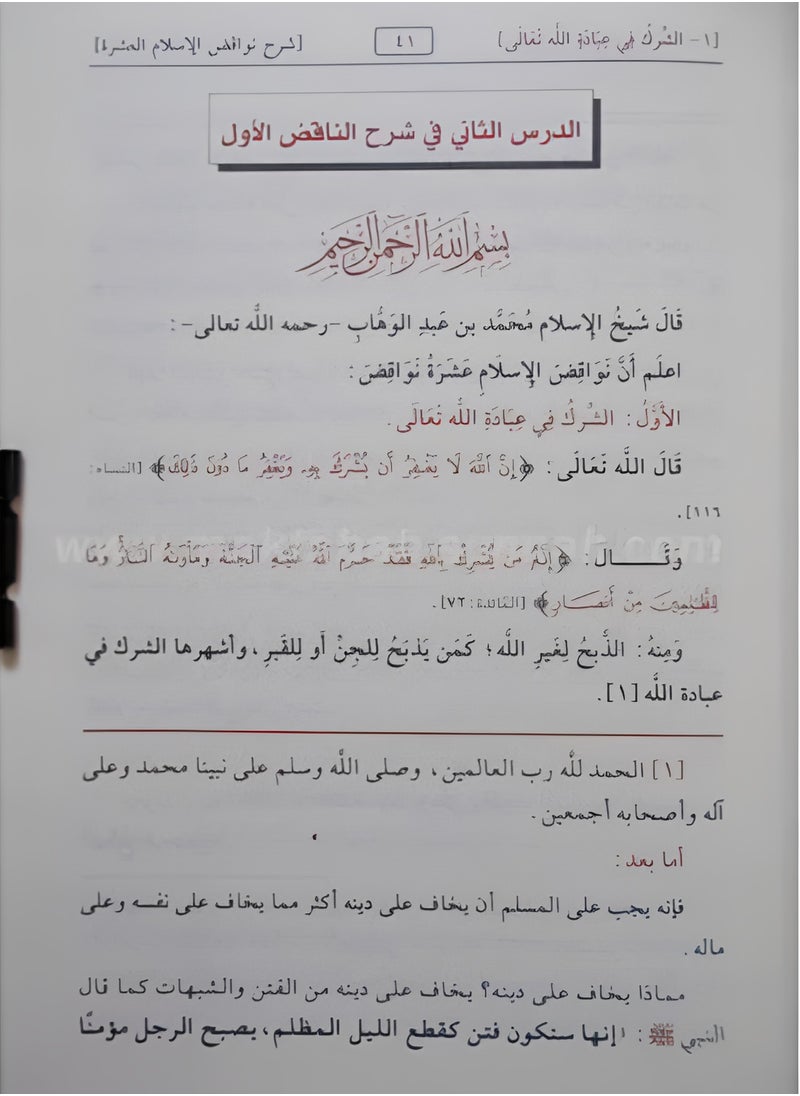 [١- الشرك في عبادة الله تعالى] ٤١ [شرح نواقض الإسلام العشرة]
الدرس الثاني في شرح الناقض الأول
بِسْمِ اللَّهِ الرَّحْمَنِ الرَّحِيمِ
قَالَ شَيخُ الإِسلَام مُحَمَّد بن عَبدِ الوَهَّابِ -رحمه الله تعالى- :
اعلَم أَنَّ نَوَاقِضَ الإِسلَامِ عَشَرَةُ نَوَاقِضَ:
الأَوَّلُ: الشِّركُ فِي عِبَادَةِ اللَّه تَعَالَى.
قَالَ اللَّه تَعَالَى: ﴿إِنَّ اللَّهَ لَا يَغْفِرُ أَن يُشْرَكَ بِهِ وَيَغْفِرُ مَا دُونَ ذَلِكَ﴾ [النساء:
١١٦].
وَقَـــــال: ﴿إِنَّهُ مَن يُشْرِكْ بِاللَّهِ فَقَدْ حَرَّمَ اللَّهُ عَلَيْهِ الْجَنَّةَ وَمَأْوَاهُ النَّارُ وَمَا
لِلظَّالِمِينَ مِنْ أَنصَارٍ﴾ [المائدة: ٧٢].
وَمِنهُ: الذَّبحُ لِغَيرِ اللَّه؛ كَمَن يَذبَحُ لِلجِنِّ أَو لِلقَبرِ، وأشهرها الشرك في
عبادة اللَّه [١].
[١] الحمد للَّه رب العالمين، وصلى اللَّه وسلم على نبينا محمد وعلى
آله وأصحابه أجمعين.
أما بعد:
فإنه يجب على المسلم أن يخاف على دينه أكثر مما يخاف على نفسه وعلى
ماله.
مماذا يخاف على دينه؟ يخاف على دينه من الفتن والشبهات كما قال
النبي ﷺ: «إنها ستكون فتن كقطع الليل المظلم، يصبح الرجل مؤمنًا